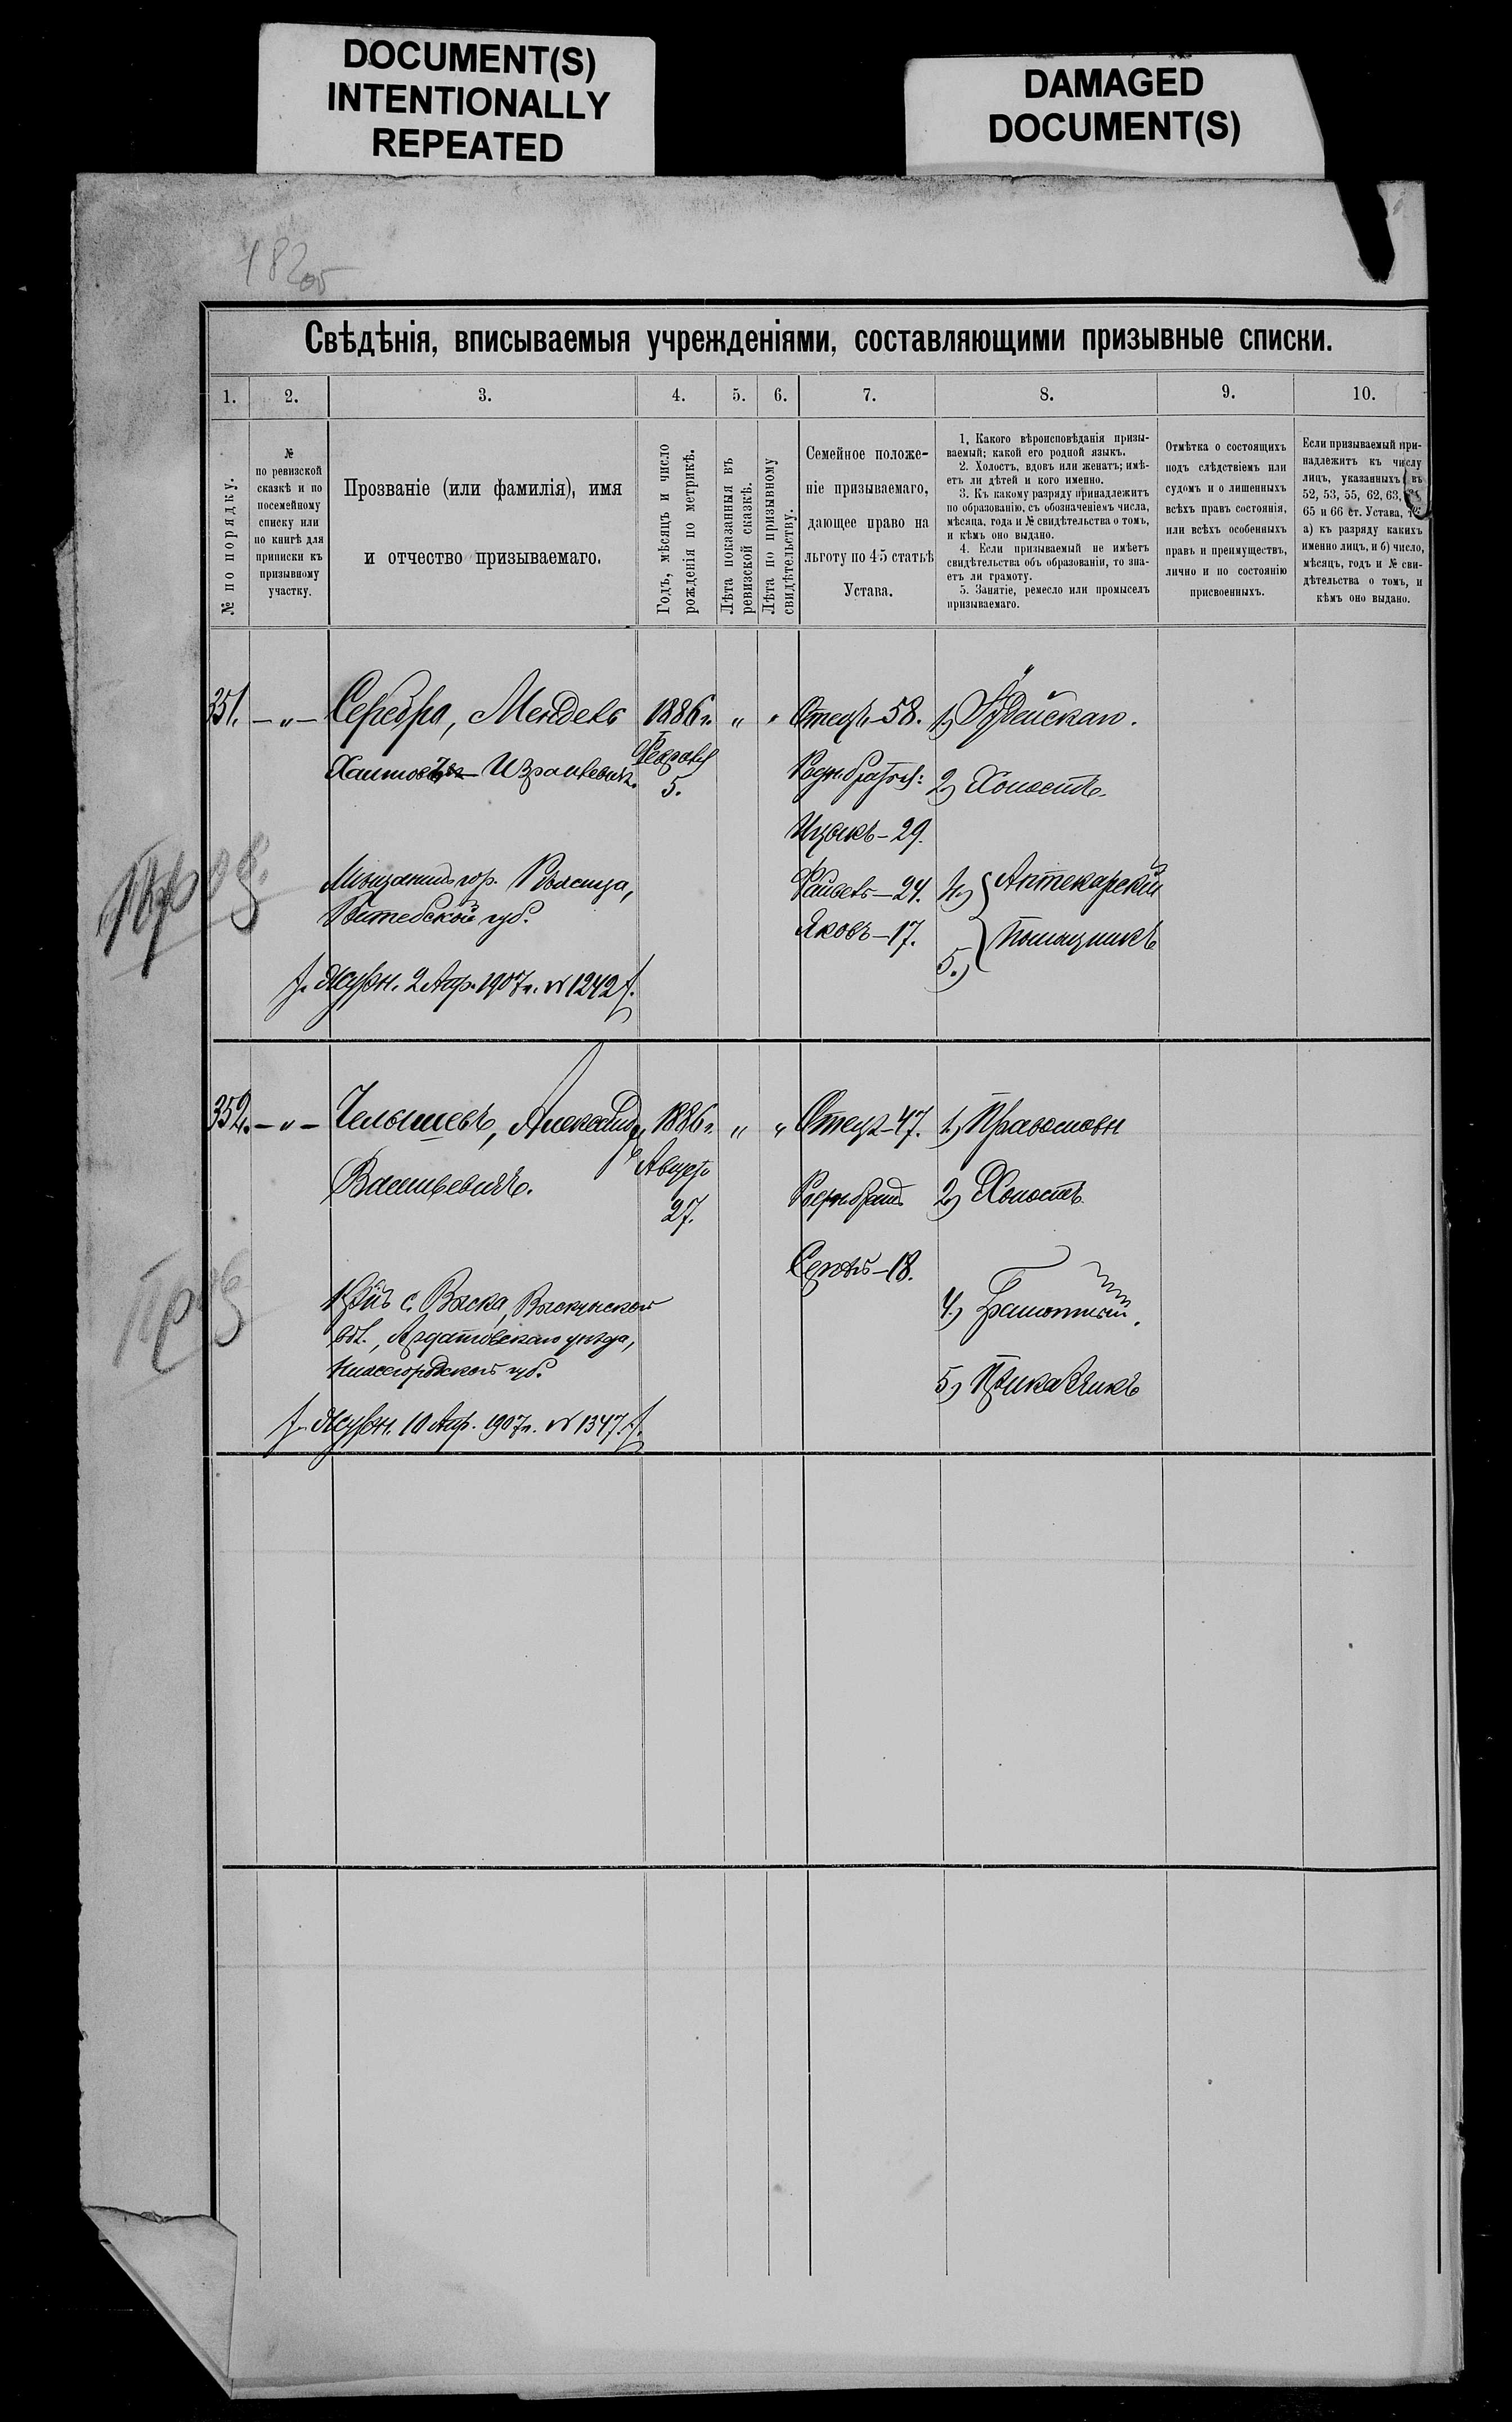 DOCUMENT(S)
INTENTIONALLY
REPEATED
DAMAGED
DOCUMENT(S)
182 об
Свѣдѣнія, вписываемыя учрежденіями, составляющими призывные списки.
1. 2. 3. 4. 5. 6. 7. 8. 9. 10.
№ по порядку.
№
по ревизской
сказкѣ и по
посемейному
списку или
по книгѣ для
приписки къ
призывному
участку.
Прозваніе (или фамилія), имя
и отчество призываемаго.
Годъ, мѣсяцъ и число
рожденія по метрикѣ.
Лѣта показанныя въ
ревизской сказкѣ.
Лѣта по призывному
свидѣтельству.
Семейное положе-
ніе призываемаго,
дающее право на
льготу по 45 статьѣ
Устава.
1. Какого вѣроисповѣданія призы-
ваемый; какой его родной языкъ.
2. Холостъ, вдовъ или женатъ; имѣ-
етъ ли дѣтей и кого именно.
3. Къ какому разряду принадлежитъ
по образованію, съ обозначеніемъ числа,
мѣсяца, года и № свидѣтельства о томъ,
и кѣмъ оно выдано.
4. Если призываемый не имѣетъ
свидѣтельства объ образованіи, то зна-
етъ ли грамоту.
5. Занятіе, ремесло или промыселъ
призываемаго.
Отмѣтка о состоящихъ
подъ слѣдствіемъ или
судомъ и о лишенныхъ
всѣхъ правъ состоянія,
или всѣхъ особенныхъ
правъ и преимуществъ,
лично и по состоянію
присвоенныхъ.
Если призываемый при-
надлежитъ къ числу
лицъ, указанныхъ въ
52, 53, 55, 62, 63,
65 и 66 ст. Устава, то:
а) къ разряду какихъ
именно лицъ, и б) число,
мѣсяцъ, годъ и № сви-
дѣтельства о томъ, и
кѣмъ оно выдано.
351. — „ — Серебро, Мендель
Израилевичъ.
Мѣщанинъ гор. Рѣжица,
Витебской губ.
Журн. 2 Апр. 1907 г. № 1242
1886 г.
5.
„ „
Отецъ — 58.
Родн. братья:
Ицокъ — 29.
24.
Яковъ — 17.
1) Іудейскаго.
2) Холостъ.
4) Аптекарскій
5.) помощникъ
352. — „ — Челышевъ, Александръ
Васильевичъ.
Кр-нъ с. Выкса, Выксунской
вол., Ардатовскаго уѣзда,
Нижегородской губ.
Журн. 10 Апр. 1907 г. № 1347.
1886 г.
Август
27.
„ „
Отецъ — 47.
Родн. братъ
Сергѣй — 18.
1) Православн
2) Холостъ
4.) Грамотный.
5) Приказчикъ